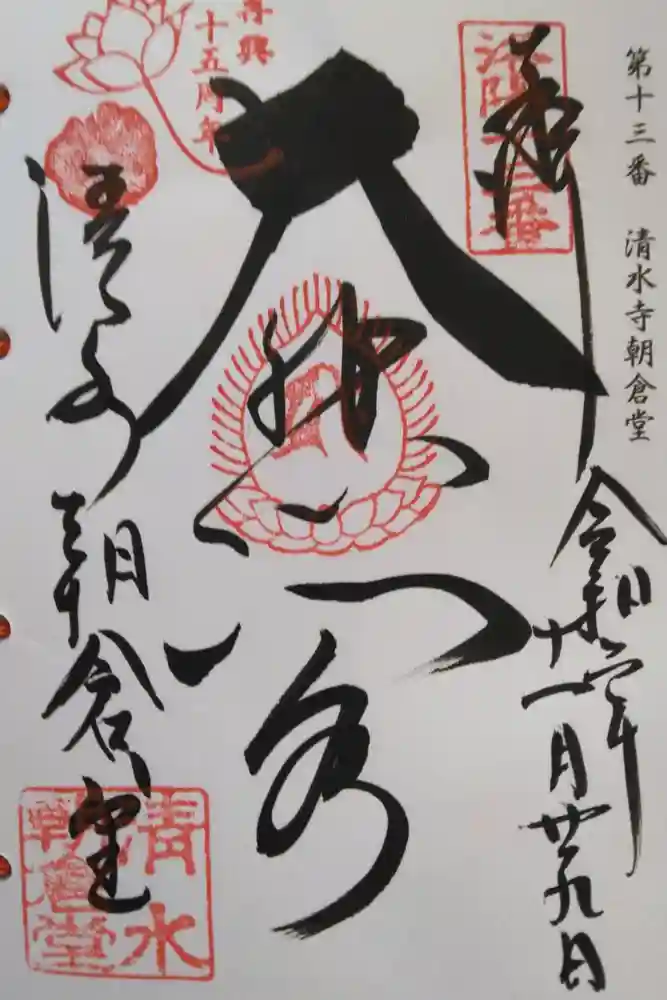 第十三番 清水寺朝倉堂
奉拝
令和六年
十一月廿九日
洛陽十三番
大悲閣
清水寺
朝倉堂
再興
十五周年
清水
朝倉堂